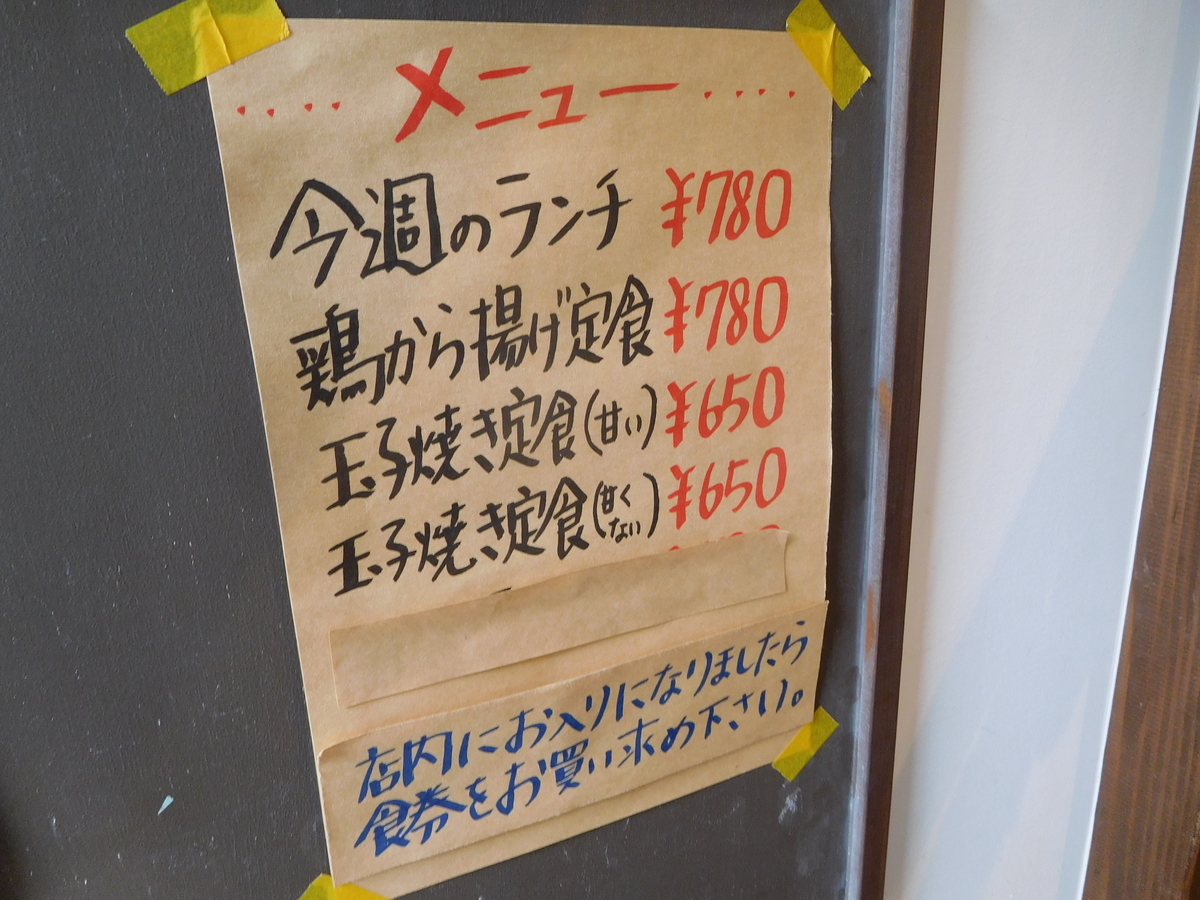 ····メニュー····
今週のランチ ¥780
鶏から揚げ定食 ¥780
玉子焼き定食(甘い) ¥650
玉子焼き定食(甘くない) ¥650
店内にお入りになりましたら
食券をお買い求め下さい。